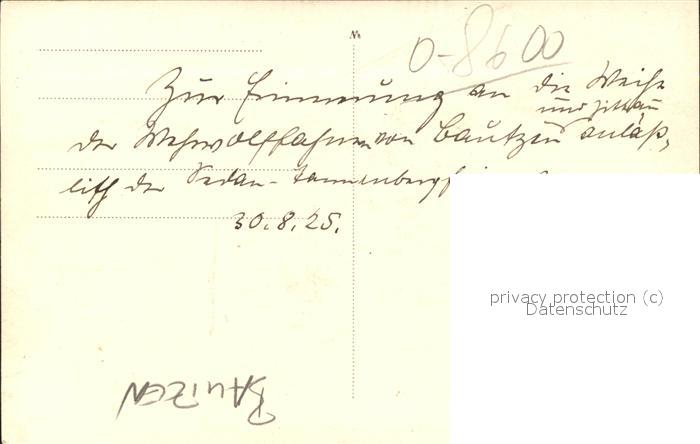 No
O-8600
Zur Erinnerung an die Weihe
und Zittau
der Wehrwolffahnen von Bautzen anläß-
lich der Sedan-Tannenbergfeier
30.8.25.
privacy protection (c)
Datenschutz
BAUTZEN